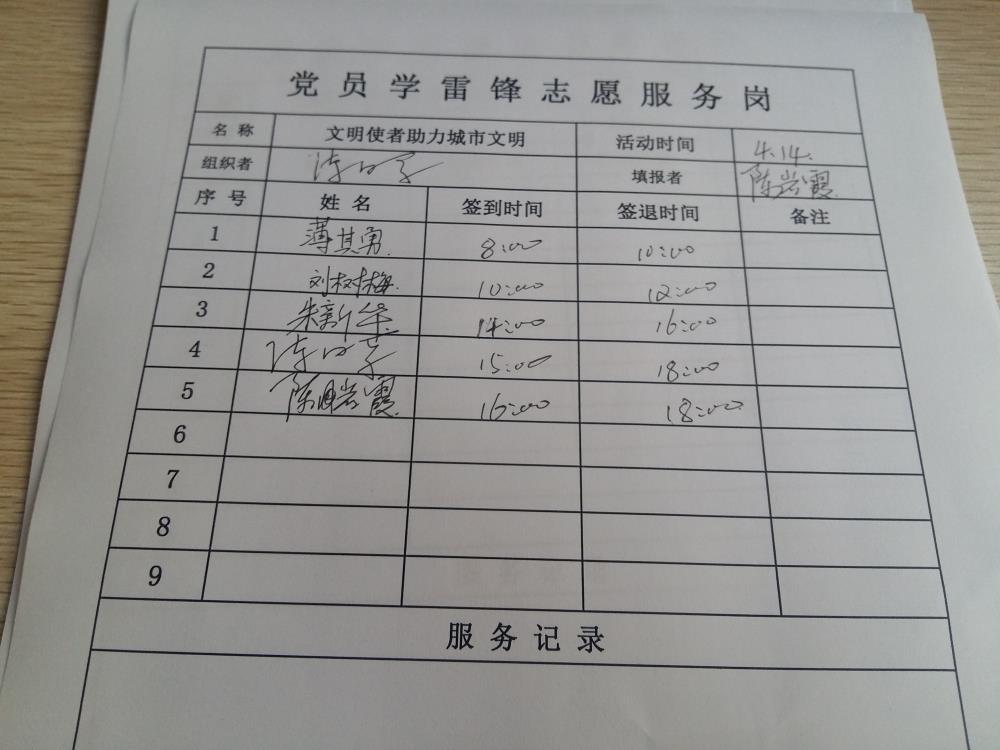 党员学雷锋志愿服务岗
名称 文明使者助力城市文明 活动时间 4.14.
组织者 填报者 陈岩霞
序号 姓名 签到时间 签退时间 备注
1 薄其勇 8:00 10:00
2 刘树梅 10:00 12:00
3 朱新华 14:00 16:00
4 15:00 18:00
5 陈岩霞 16:00 18:00
6
7
8
9
服务记录